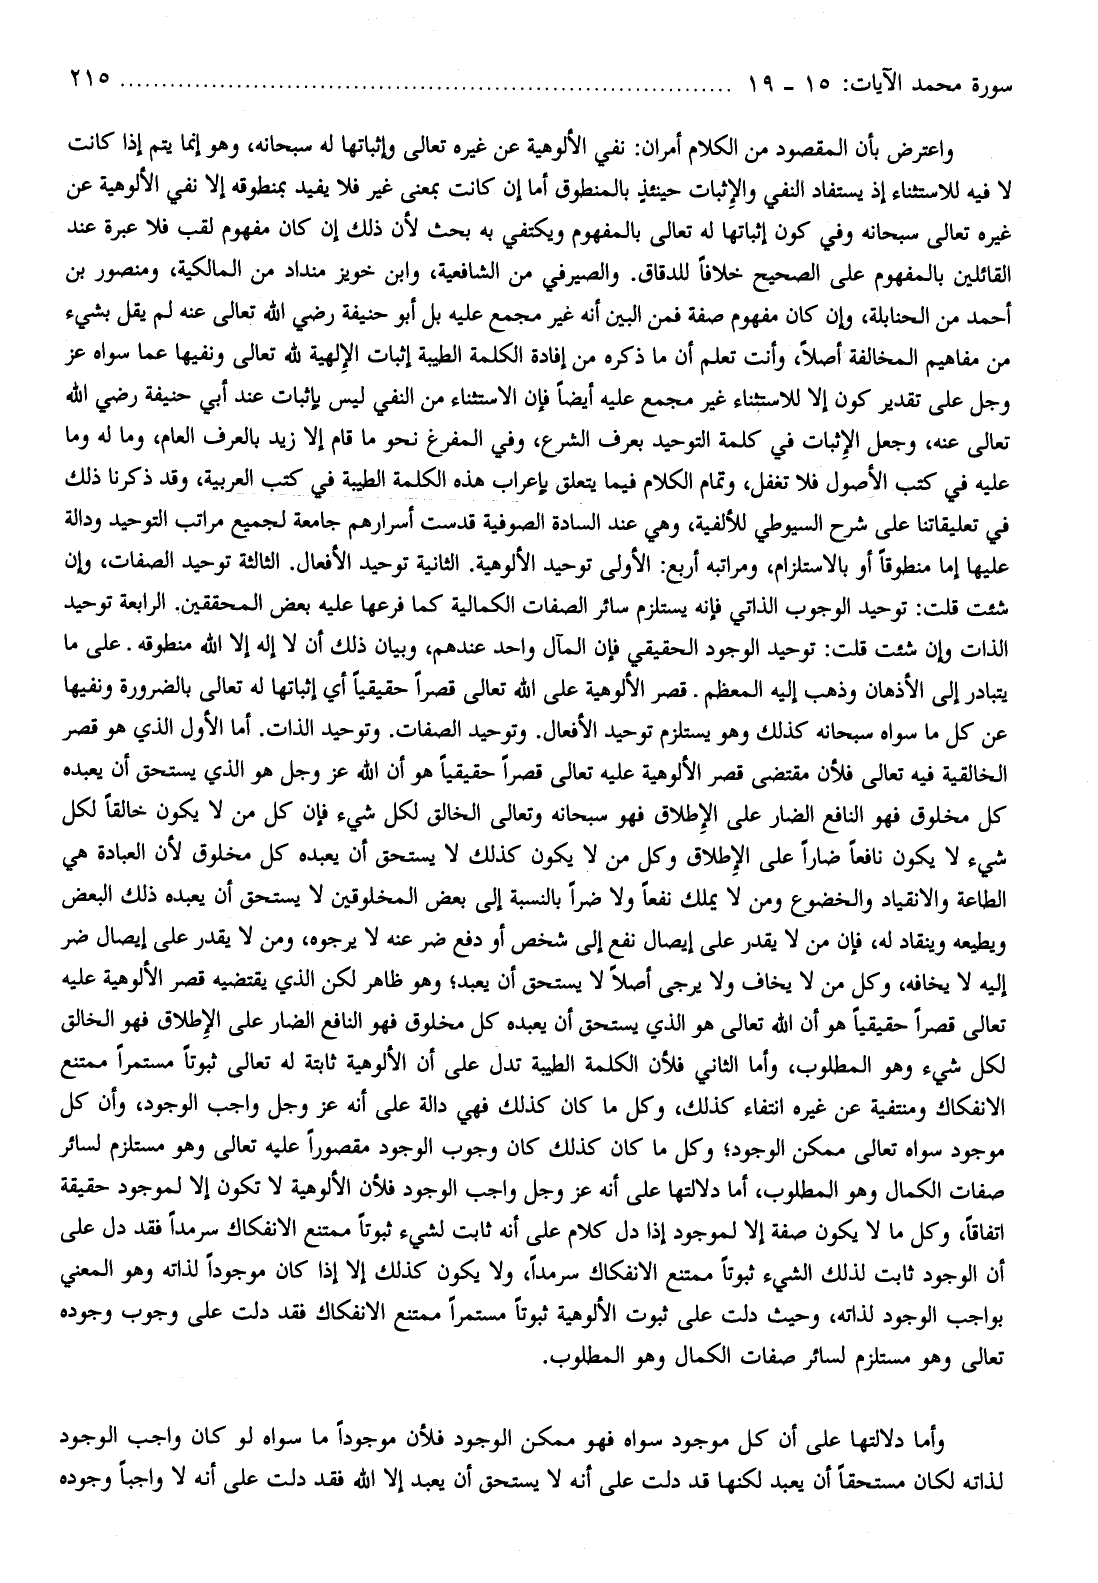 سورة محمد الآيات: ١٥ - ١٩ ................................................................ ٢١٥
واعترض بأن المقصود من الكلام أمران: نفي الألوهية عن غيره تعالى وإثباتها له سبحانه، وهو إنما يتم إذا كانت
لا فيه للاستثناء إذ يستفاد النفي والإثبات حينئذٍ بالمنطوق أما إن كانت بمعنى غير فلا يفيد بمنطوقه إلا نفي الألوهية عن
غيره تعالى سبحانه وفي كون إثباتها له تعالى بالمفهوم ويكتفي به بحث لأن ذلك إن كان مفهوم لقب فلا عبرة عند
القائلين بالمفهوم على الصحيح خلافاً للدقاق. والصيرفي من الشافعية، وابن خويز منداد من المالكية، ومنصور بن
أحمد من الحنابلة، وإن كان مفهوم صفة فمن البين أنه غير مجمع عليه بل أبو حنيفة رضي الله تعالى عنه لم يقل بشيء
من مفاهيم المخالفة أصلاً، وأنت تعلم أن ما ذكره من إفادة الكلمة الطيبة إثبات الإلهية لله تعالى ونفيها عما سواه عز
وجل على تقدير كون إلا للاستثناء غير مجمع عليه أيضاً فإن الاستثناء من النفي ليس بإثبات عند أبي حنيفة رضي الله
تعالى عنه، وجعل الإثبات في كلمة التوحيد بعرف الشرع، وفي المفرغ نحو ما قام إلا زيد بالعرف العام، وما له وما
عليه في كتب الأصول فلا تغفل، وتمام الكلام فيما يتعلق بإعراب هذه الكلمة الطيبة في كتب العربية، وقد ذكرنا ذلك
في تعليقاتنا على شرح السيوطي للألفية، وهي عند السادة الصوفية قدست أسرارهم جامعة لجميع مراتب التوحيد ودالة
عليها إما منطوقاً أو بالاستلزام، ومراتبه أربع: الأولى توحيد الألوهية. الثانية توحيد الأفعال. الثالثة توحيد الصفات، وإن
شئت قلت: توحيد الوجوب الذاتي فإنه يستلزم سائر الصفات الكمالية كما فرعها عليه بعض المحققين. الرابعة توحيد
الذات وإن شئت قلت: توحيد الوجود الحقيقي فإن المآل واحد عندهم، وبيان ذلك أن لا إله إلا الله منطوقه . على ما
يتبادر إلى الأذهان وذهب إليه المعظم . قصر الألوهية على الله تعالى قصراً حقيقياً أي إثباتها له تعالى بالضرورة ونفيها
عن كل ما سواه سبحانه كذلك وهو يستلزم توحيد الأفعال. وتوحيد الصفات. وتوحيد الذات. أما الأول الذي هو قصر
الخالقية فيه تعالى فلأن مقتضى قصر الألوهية عليه تعالى قصراً حقيقياً هو أن الله عز وجل هو الذي يستحق أن يعبده
كل مخلوق فهو النافع الضار على الإطلاق فهو سبحانه وتعالى الخالق لكل شيء فإن كل من لا يكون خالقاً لكل
شيء لا يكون نافعاً ضاراً على الإطلاق وكل من لا يكون كذلك لا يستحق أن يعبده كل مخلوق لأن العبادة هي
الطاعة والانقياد والخضوع ومن لا يملك نفعاً ولا ضراً بالنسبة إلى بعض المخلوقين لا يستحق أن يعبده ذلك البعض
ويطيعه وينقاد له، فإن من لا يقدر على إيصال نفع إلى شخص أو دفع ضر عنه لا يرجوه، ومن لا يقدر على إيصال ضر
إليه لا يخافه، وكل من لا يخاف ولا يرجى أصلاً لا يستحق أن يعبد؛ وهو ظاهر لكن الذي يقتضيه قصر الألوهية عليه
تعالى قصراً حقيقياً هو أن الله تعالى هو الذي يستحق أن يعبده كل مخلوق فهو النافع الضار على الإطلاق فهو الخالق
لكل شيء وهو المطلوب، وأما الثاني فلأن الكلمة الطيبة تدل على أن الألوهية ثابتة له تعالى ثبوتاً مستمراً ممتنع
الانفكاك ومنتفية عن غيره انتفاء كذلك، وكل ما كان كذلك فهي دالة على أنه عز وجل واجب الوجود، وأن كل
موجود سواه تعالى ممكن الوجود؛ وكل ما كان كذلك كان وجوب الوجود مقصوراً عليه تعالى وهو مستلزم لسائر
صفات الكمال وهو المطلوب، أما دلالتها على أنه عز وجل واجب الوجود فلأن الألوهية لا تكون إلا لموجود حقيقة
اتفاقاً، وكل ما لا يكون صفة إلا لموجود إذا دل كلام على أنه ثابت لشيء ثبوتاً ممتنع الانفكاك سرمداً فقد دل على
أن الوجود ثابت لذلك الشيء ثبوتاً ممتنع الانفكاك سرمداً، ولا يكون كذلك إلا إذا كان موجوداً لذاته وهو المعني
بواجب الوجود لذاته، وحيث دلت على ثبوت الألوهية ثبوتاً مستمراً ممتنع الانفكاك فقد دلت على وجوب وجوده
تعالى وهو مستلزم لسائر صفات الكمال وهو المطلوب.
وأما دلالتها على أن كل موجود سواه فهو ممكن الوجود فلأن موجوداً ما سواه لو كان واجب الوجود
لذاته لكان مستحقاً أن يعبد لكنها قد دلت على أنه لا يستحق أن يعبد إلا الله فقد دلت على أنه لا واجباً وجوده